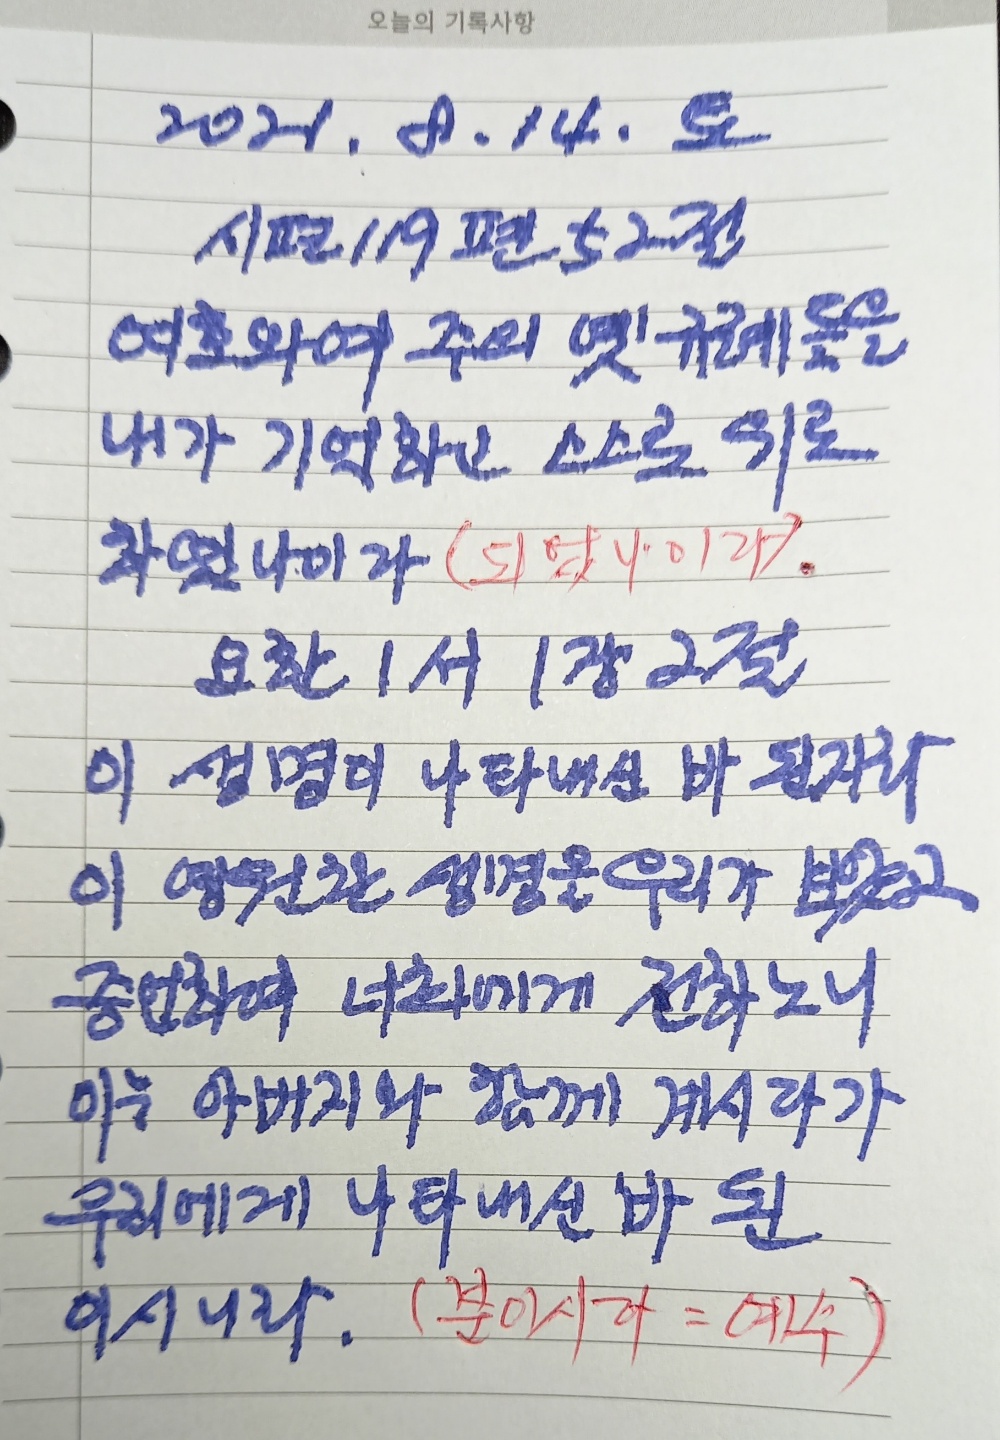 오늘의 기록사항
2021. 8. 14. 토
시편119편52절
여호와여 주의 옛 규례들을
내가 기억하고 스스로 위로
하였나이다 (되었나이다).
요한1서 1장 2절
이 생명이 나타내신 바 된지라
이 영원한 생명을 우리가 보았고
증언하여 너희에게 전하노니
이는 아버지와 함께 계시다가
우리에게 나타내신 바 된
이시니라. (분이시다 = 예수)